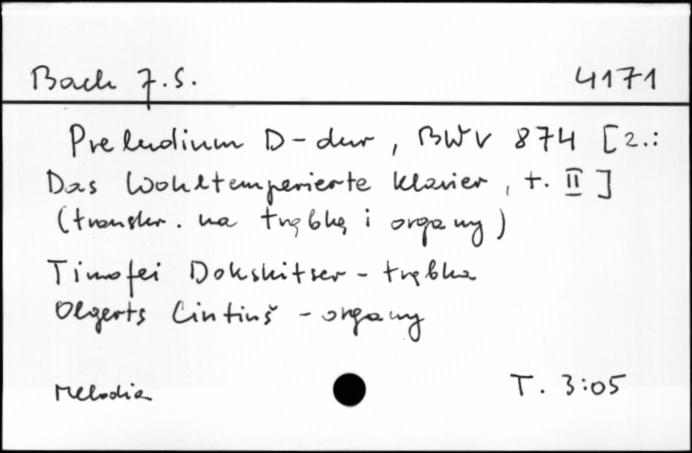 Bach J.S. 4171
Preludium D-dur, BWV 874 [z.:
Das Wohltemperierte Klavier, t. II]
(transkr. na trąbkę i organy)
Timofei Dokshitser - trąbka
Olgerts Cintiņš - organy
Melodia T. 3:05